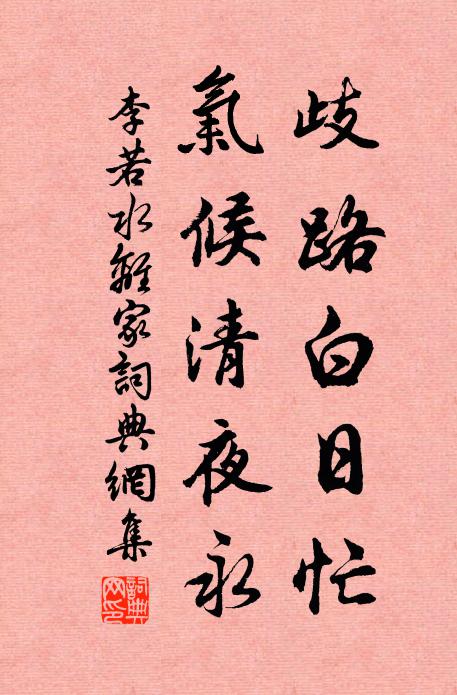 歧路白日忙
氣候清夜永
李若水離家詞典網集
詞典網印